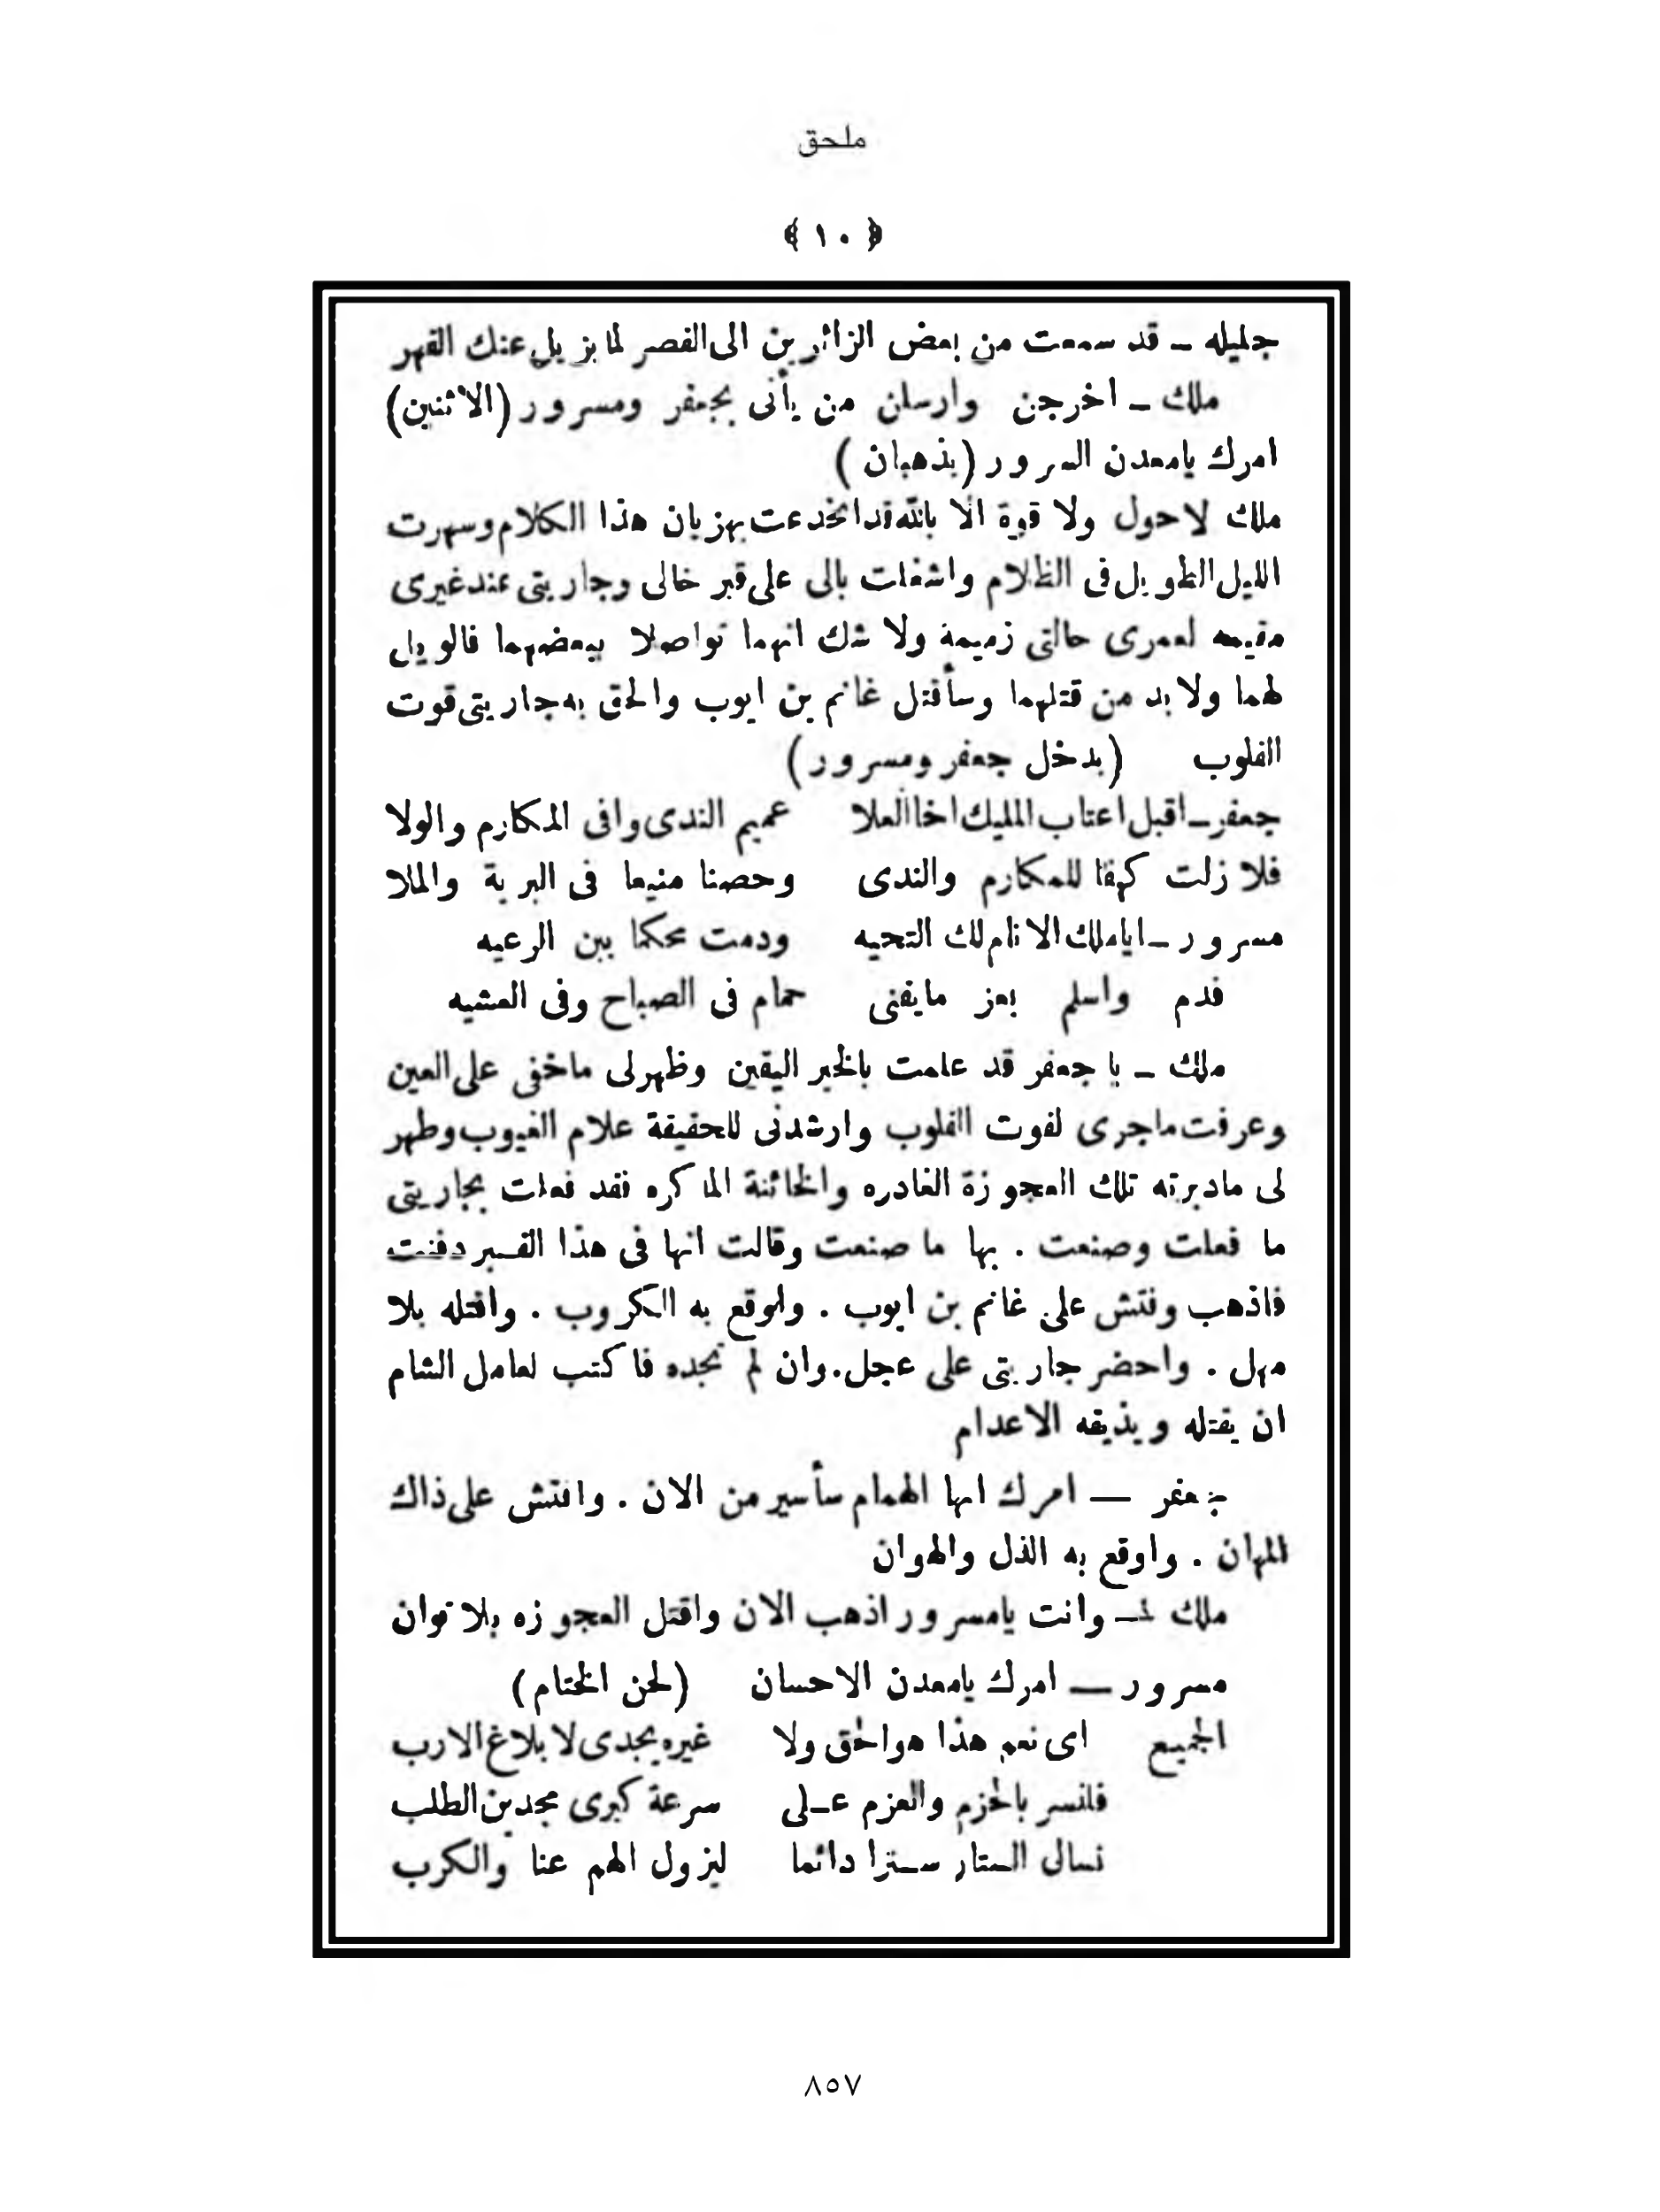 ملحق
﴿ ١٠ ﴾
جليله ـ قد سمعت من بعض الزائرين الى القصر لما يزيل عنك القهر
ملك ـ اخرجن وارسلن من يأتى بجعفر ومسرور (الاثنين)
امرك يامعدن السرور (يذهبان)
ملك لاحول ولا قوة الا بالله قد انخدعت بهزيان هذا الكلام وسهرت
الليل الطويل فى الظلام واشغلت بالى على قبر خالى وجاريتى عند غيرى
مقيمه لعمرى حالتى زميمة ولا شك انهما تواصلا ببعضهما فالويل
لهما ولا بد من قتلهما وسأقتل غانم بن ايوب والحق به جاريتى قوت
القلوب (يدخل جعفر ومسرور)
جعفر ـ أقبل اعتاب المليك اخا العلا عميم الندى وافى المكارم والولا
فلا زلت كهفا للمكارم والندى وحصنا منيعا فى البرية والملا
مسرور ـ اياملك الانام لك التحيه ودمت محكما بين الرعيه
فدم واسلم بعز مايغنى حمام فى الصباح وفى العشيه
ملك ـ يا جعفر قد علمت بالخبر اليقين وظهرلى ماخفى على العين
وعرفت ماجرى لقوت القلوب وارشدنى للحقيقة علام الغيوب وظهر
لى مادبرته تلك العجوزة الغادره والخائنة الماكره فقد فعلت بجاريتى
ما فعلت وصنعت . بها ما صنعت وقالت انها فى هذا القبر دفنت
فاذهب وفتش على غانم بن ايوب . واوقع به الكروب . واقتله بلا
مهل . واحضر جاريتى على عجل . وان لم تجده فاكتب لعامل الشام
ان يقتله ويذيقه الاعدام
جعفر — امرك ايها الهمام سأسير من الان . وافتش على ذاك
المهان . واوقع به الذل والهوان
ملك ـ وانت يامسرور اذهب الان واقتل العجوزه بلا توان
مسرور — امرك يامعدن الاحسان (لحن الختام)
الجميع اى نعم هذا هوالحق ولا غيره يجدى لا بلاغ الارب
فلنسر بالحزم والعزم عـلى سرعة كبرى مجدين الطلب
نسال الستار سـترا دائما ليزول الهم عنا والكرب
٨٥٧